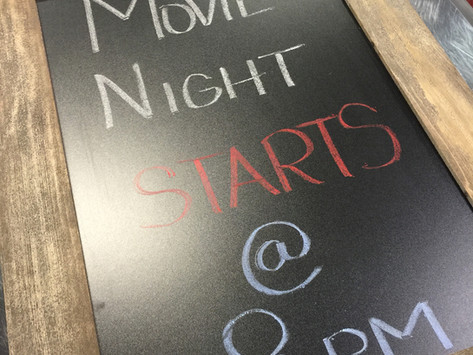 MOVIE
NIGHT
STARTS
@
PM